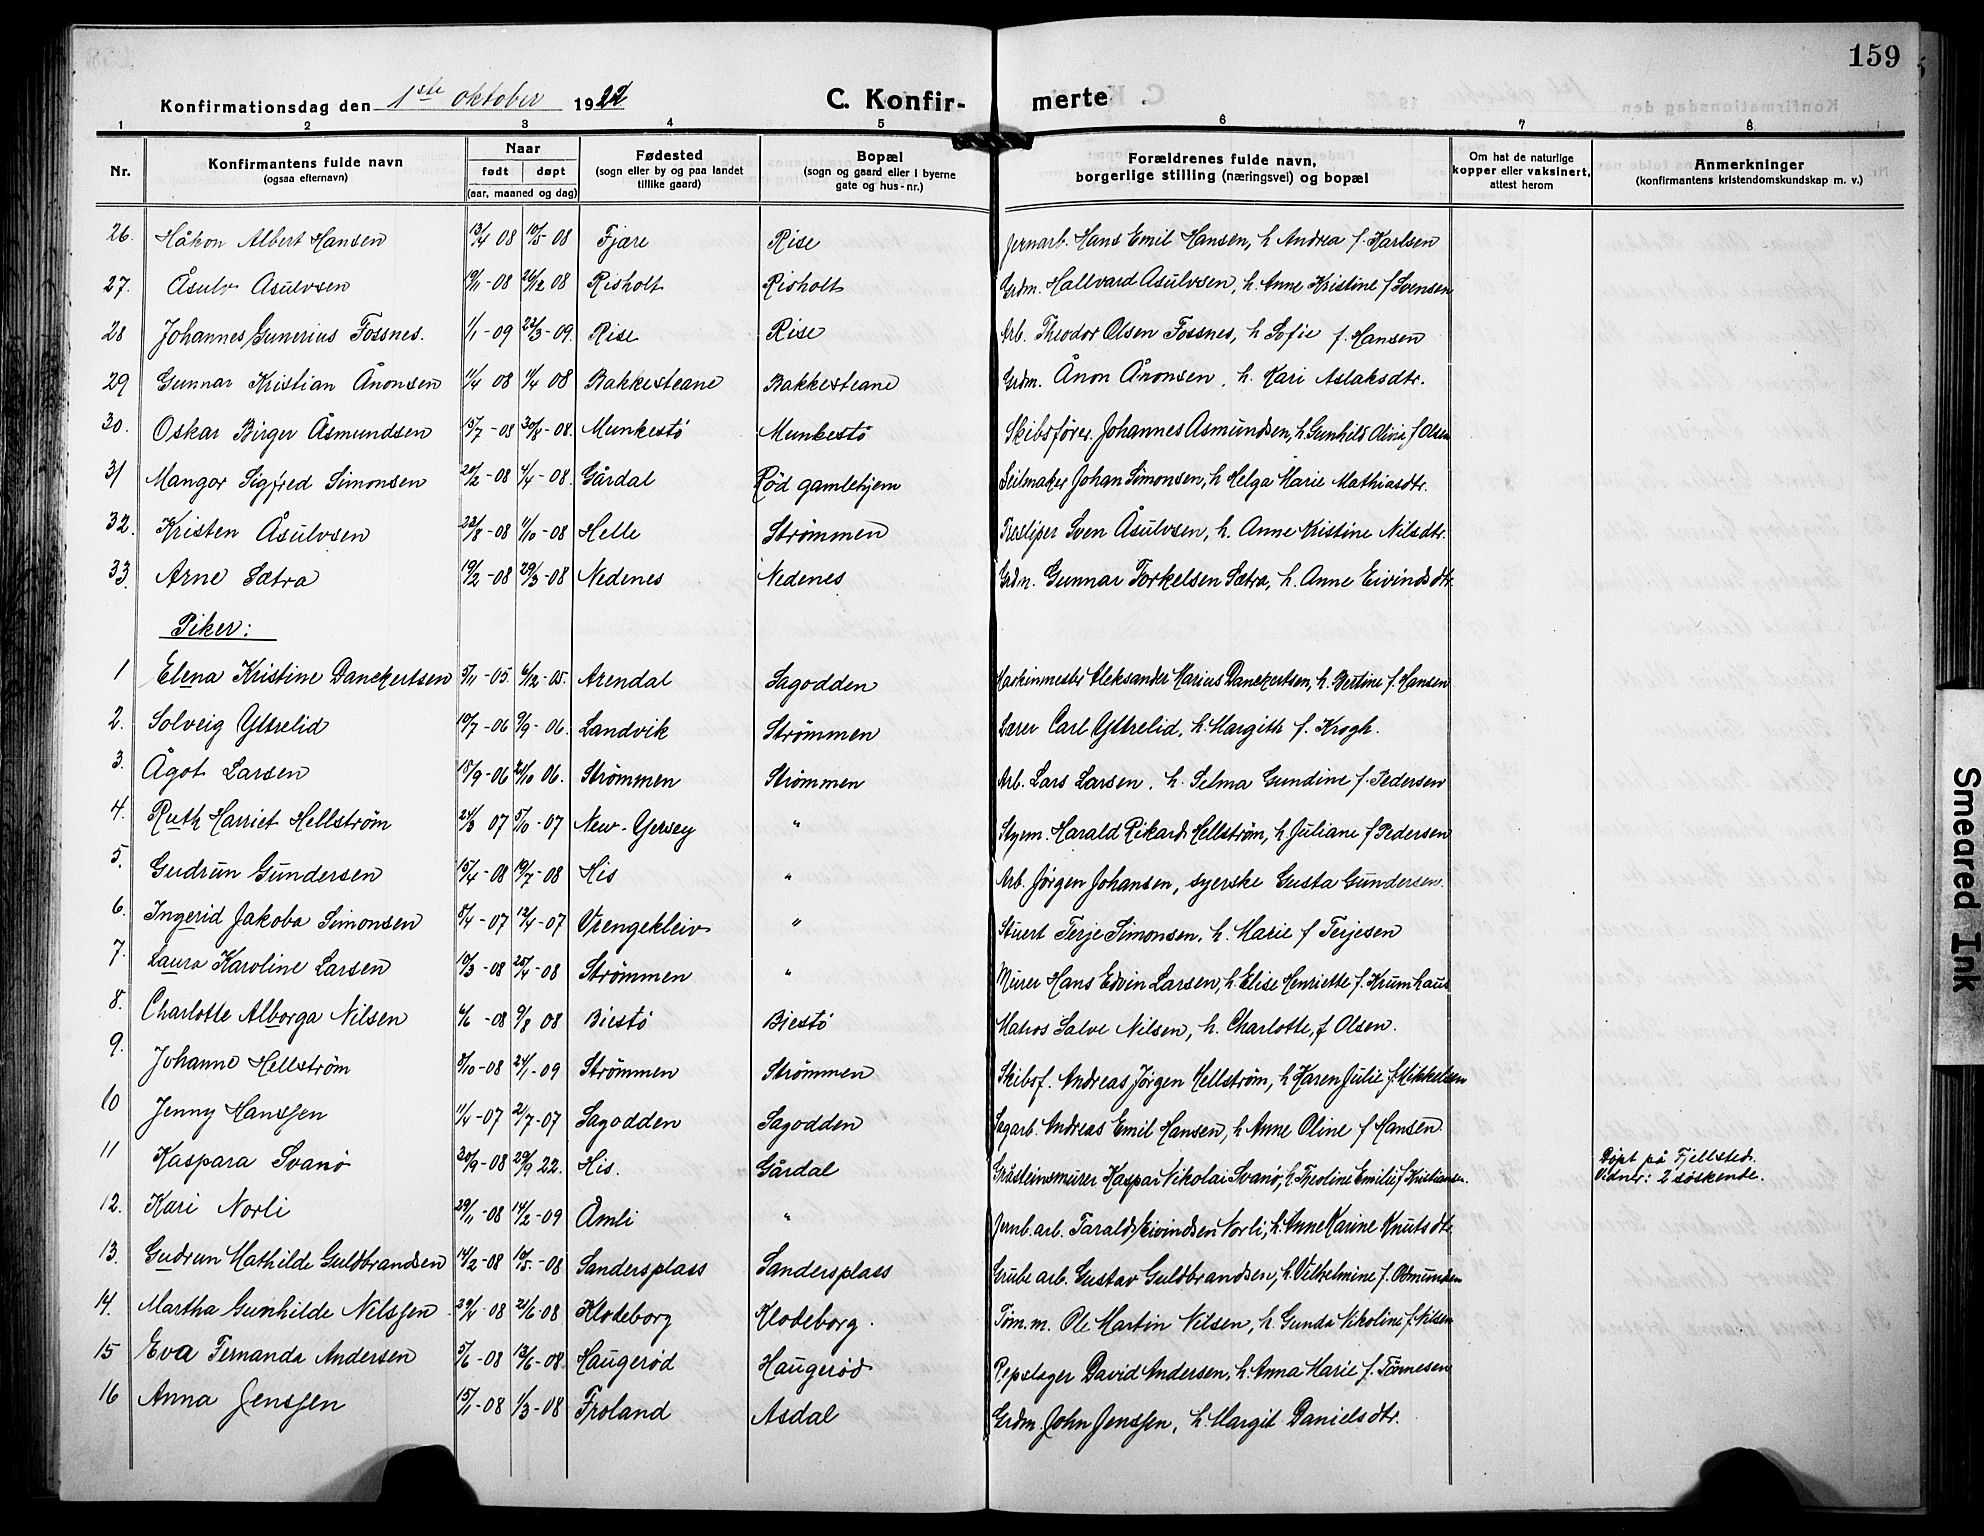 159
Konfirmationsdag den 1ste oktober 1922
C. Konfirmerte.
1 2 3 4 5 6 7 8
Nr. | Konfirmantens fulde navn (ogsaa efternavn) | Naar født døpt (aar, maaned og dag) | Fødested (sogn eller by og paa landet tillike gaard) | Bopæl (sogn og gaard eller i byerne gate og hus-nr.) | Forældrenes fulde navn, borgerlige stilling (næringsvei) og bopæl | Om hat de naturlige kopper eller vaksinert, attest herom | Anmerkninger (konfirmantens kristendomskundskap m. v.)
26. Håkon Albert Hansen 13/4 08 10/5-08 Fjære Rise Jernarb. Hans Emil Hansen, h Andrea f. Karlsen
27. Åsulv Asulvsen 19/11-08 26/12 08 Risholt Risholt Grdm. Hallvard Asulvsen, h. Anne Kristine f Svensen
28 Johannes Gunerius Fossnes. 1/1-09 22/3-09. Rise Rise Arb. Theodor Olsen Fossnes, h Sofie f. Hansen
29 Gunnar Kristian Ånonsen 11/4 08 08 Bakkesteane Bakkesteane Grdm. Ånon Ånonsen, h. Kari Aslaksdtr.
30. Oskar Birger Åsmundsen 15/7-08 30/8-08. Munkestø Munkestø Skibsfører. Johannes Asmundsen, h. Gunhild Olivia f Olsen
31 Mangor Sigfred Simonsen 20/2-08 4/4-08 Gårdal Rød gamlehjem Seilmaker Johan Simonsen, h Helga Marie Mathiasdtr.
32. Kristen Åsulvsen 22/8-08 1/10-08 Helle Strømmen Træsliper Sven Åsulvsen, h. Anne Kristine Nilsdtr.
33. Arne Sætra 19/2-08 29/3-08 Nedenes Nedenes Grdm. Gunnar Torkelsen Sætra, h. Anne Eivindsdtr.
Piker:
1 Elena Kristine Danckertsen 5/11-05. 6/12-05. Arendal Sagodden Maskinmester Aleksander Marius Danckertsen, h. Bertine f. Hansen
2. Solveig Yttrelid 19/7-06 9/9-06. Landvik Strømmen Lærer Carl Yttrelid, h. Margith f. Krogh.
3. Ågot Larsen 18/9-06 21/10 06. Strømmen Strømmen Arb. Lars Larsen, h. Selma Gundine f. Pedersen
4. Ruth Harriet Hellstrøm 24/3 07 5/10-07 New-Yersey " Styrm. Harald Rikard Hellstrøm, h Juliane f Pedersen
5. Gudrun Gundersen 15/4-08 19/7-08 His " Arb. Jørgen Johansen, syerske Gusta Gundersen.
6. Ingerid Jakoba Simonsen 8/4-07 12/4-07 Vrengekleiv " Stuert Terje Simonsen, h. Marie f Terjesen
7. Laura Karoline Larsen 10/3-08 20/4-08 Strømmen " Murer Hans Edvin Larsen, h. Elise Henriette f. Krumhaus
8. Charlotte Alborga Nilsen 4/6-08 9/8 08 Biestø Biestø Matros Salve Nilsen, h. Charlotte, f Olsen.
9. Johanne Hellstrøm 8/10-08 24/1-09 Strømmen Strømmen Skibsf. Andreas Jørgen Hellstrøm, h Karen Julie f. Mikkelsen
10 Jenny Hanssen 11/4-07 21/7-07 Sagodden Sagodden Sagarb. Andreas Emil Hansen, h Anne Oline f Hansen
11 Kaspara Svanø 20/9-08 29/9 22. His. Gårdal Gråsteinsmurer Kaspar Nikolai Svanø, h. Theoline Emilie f Kristiansen. Døpt på Fjellsted. Vidner: 2 søskende.
12. Kari Norli 29/11-08 14/2-09 Åmli " Jernb. arb. Tarald Eivindsen Norli, h. Anne Karine Knutsdtr
13. Gudrun Mathilde Guldbrandsen 14/2-08 10/5-08 Sandersplass Sandersplass Grube arb. Gustav Guldbrandsen, h. Vilhelmine f. Osmundsen
14. Martha Gunhilde Nilssen 29/4-08 21/6-08 Klodeborg Klodeborg. Tøm.m. Ole Martin Nilsen, h. Gunda Nikoline f. Nilsen
15 Eva Fernanda Andersen 5/6-08 12/6-08 Haugerød Haugerød Repslager David Andersen, h. Anna Marie f. Tønnesen
16 Anna Jenssen 15/1-08 1/3-08 Froland Asdal Grdm. John Jenssen, h. Margit Danielsdtr.
Smeared Ink